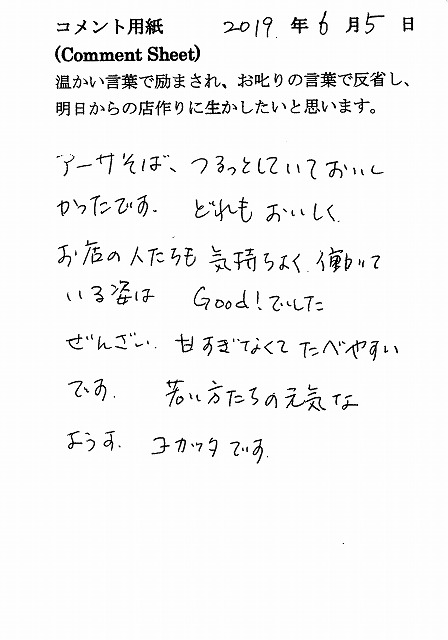 コメント用紙 2019. 年 6 月 5 日
(Comment Sheet)
温かい言葉で励まされ、お叱りの言葉で反省し、
明日からの店作りに生かしたいと思います。
アーサそば、つるっとしていておいし
かったです. どれもおいしく
お店の人たちも気持ちよく働いて
いる姿は Good!でした
ぜんざい. 甘すぎなくてたべやすい
です. 若い方たちの元気な
ようす. ヨカッタです.